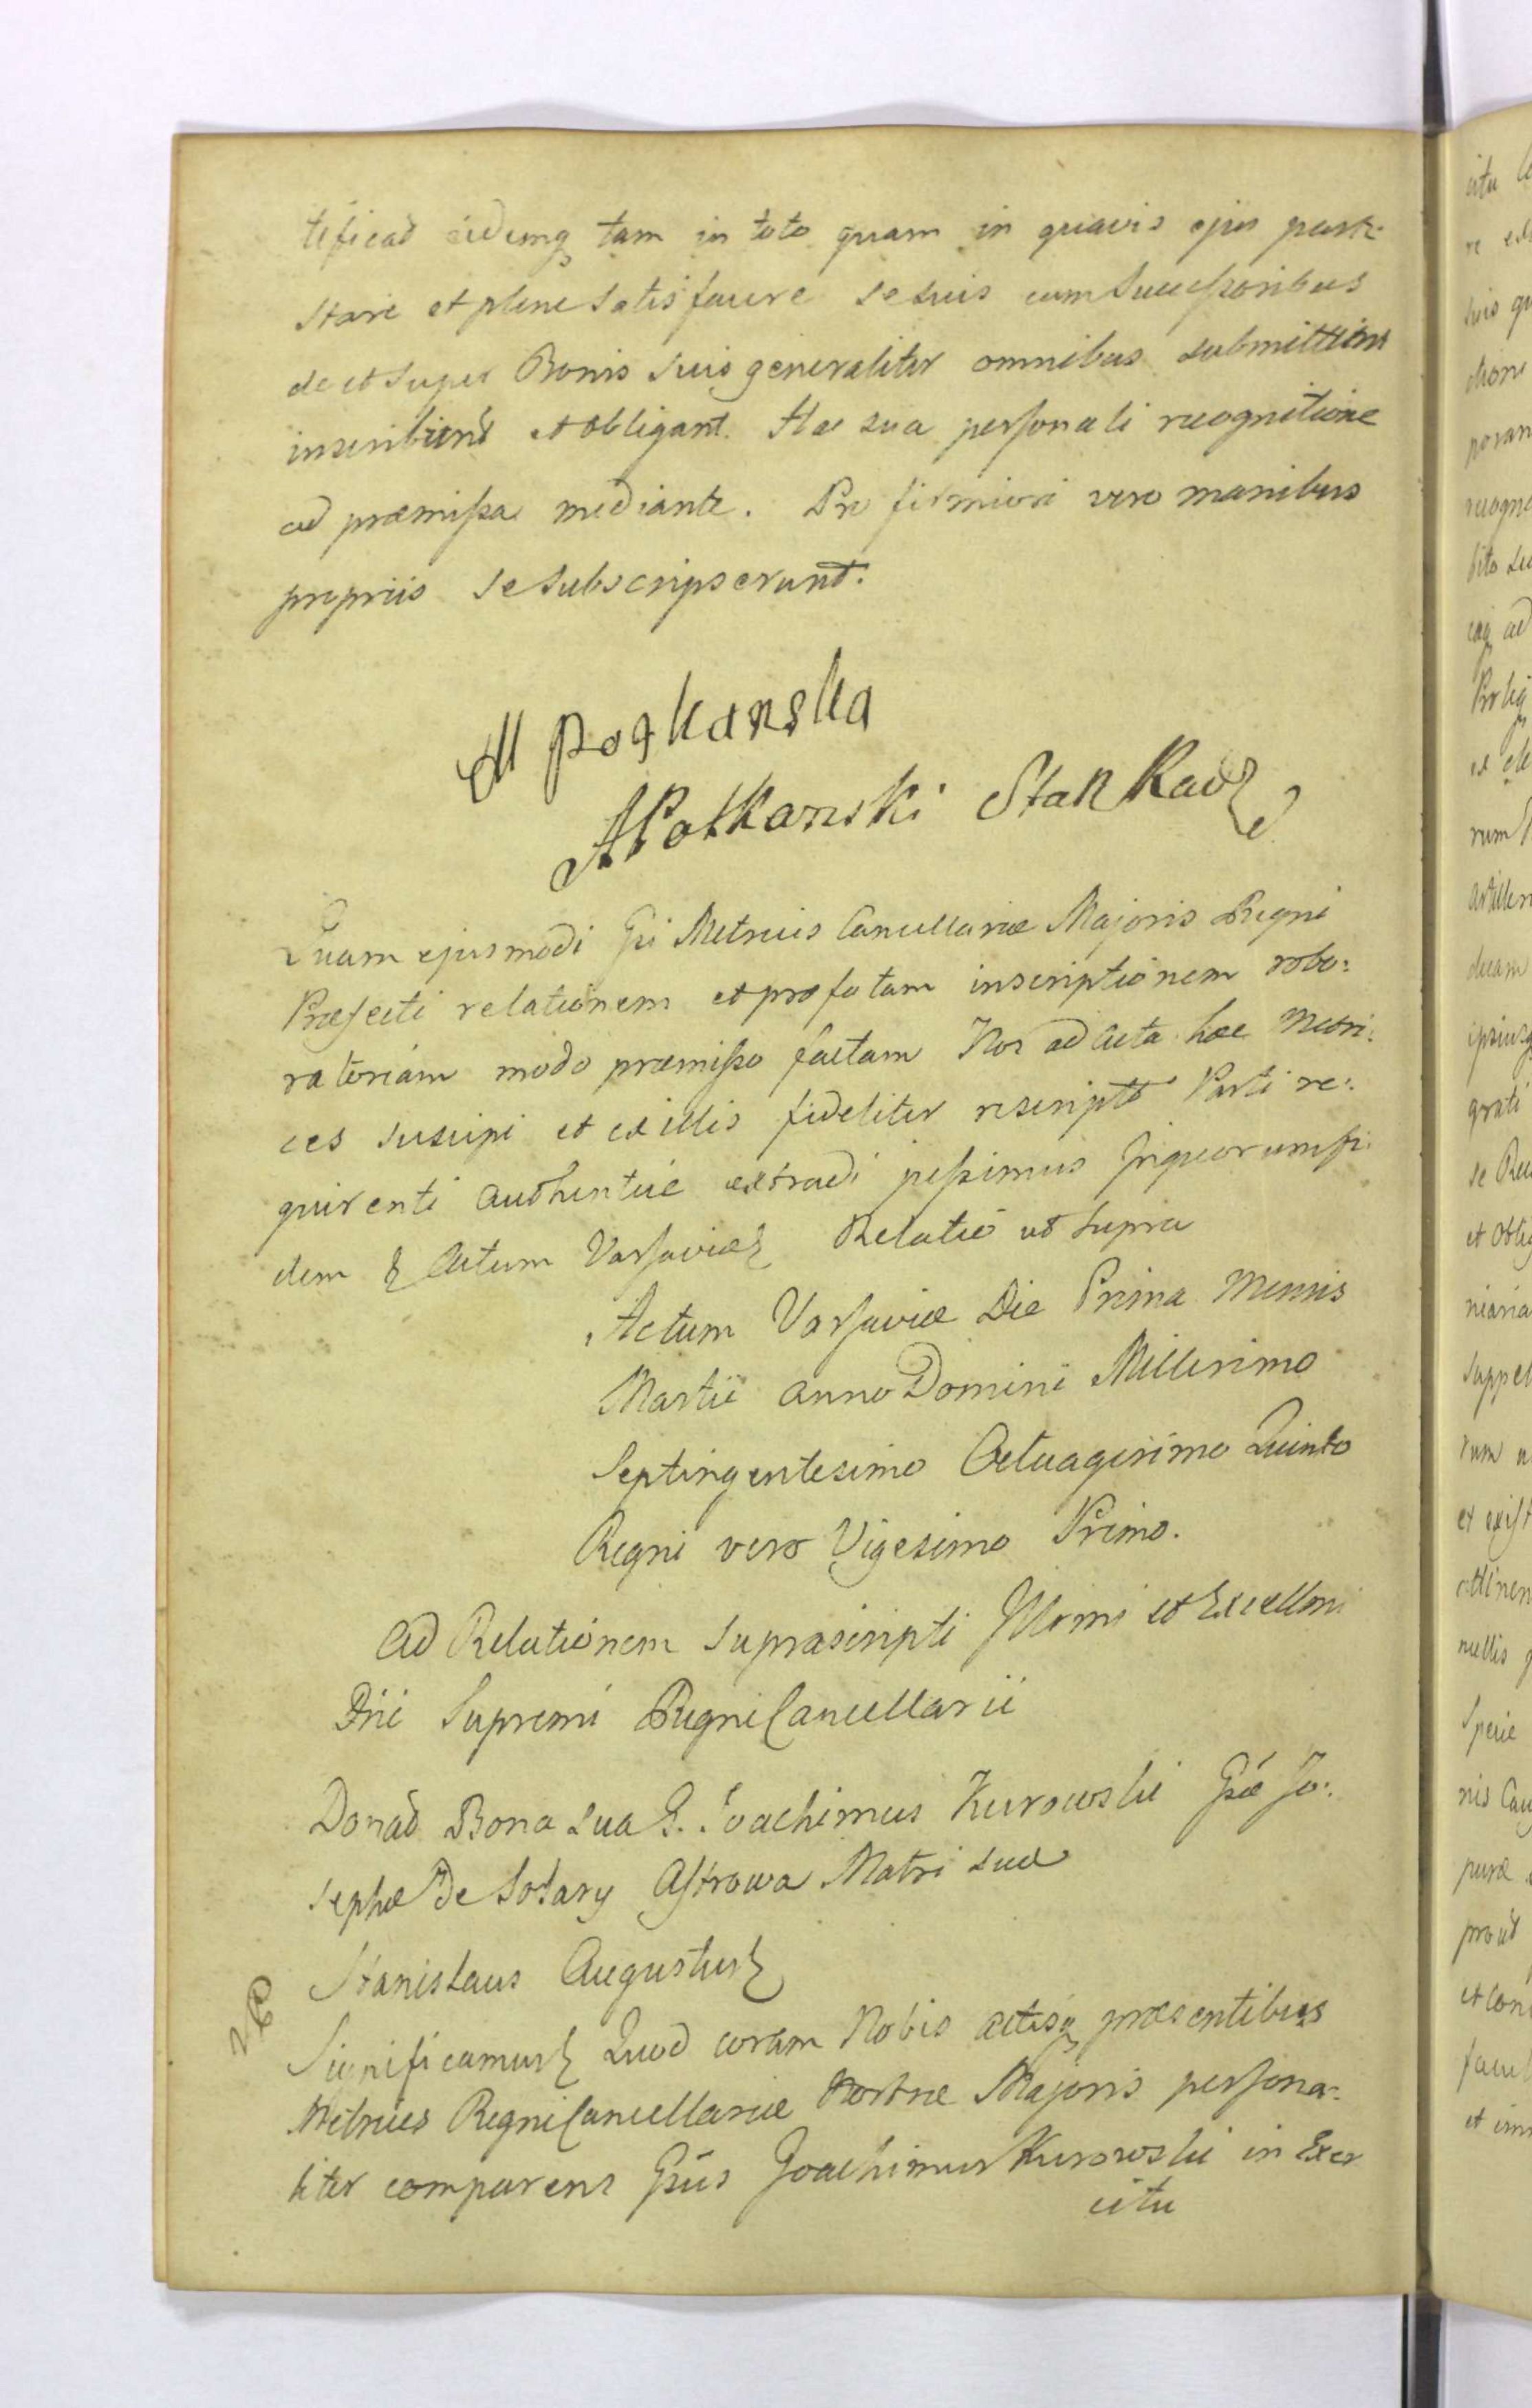 tificat eidemq tam in toto quam in quavis ejus parte
stare et plene satisfacere se suis cum Successoribus
de et super Bonis suis generaliter omnibus submittunt
inscribunt et obligant. Hac sua personali recognitione
ad præmissa mediante. Pro firmiori vero manibus
propriis se subscripserunt.
M Potkanska
A Potkanski Stan Radz
Quam ejusmodi Gsi Metrices Cancellariæ Majoris Regni
Præfecti relationem et præfatam inscriptionem robo:
ratoriam modo præmisso factam Nos ad Acta hæc Metri:
ces suscipi et ex illis fideliter rescript Parti re:
quirenti authentice extradi jussimus Inquorum fi:
dem Actum Varsaviæ Relatio ut supra
Actum Varsaviæ Die Prima Mensis
Martii anno Domini Millesimo
Septingentesimo Octuagesimo Quinto
Regni vero Vigesimo Primo.
Ad Relationem suprascripti Illrmi et Excellmi
Dni Supremi Regni Cancellarii
Donat Bona sua G. Joachimus Kurowski Gsæ Jo:
sephæ De Ostrowa Matri suæ
Stanislaus Augustus
Significamus Quod coram Nobis actisq præsentibus
Metrices Regni Cancellariæ Nostræ Majoris persona:
liter comparens Gsus Joachimus Kurowski in Exer
citu